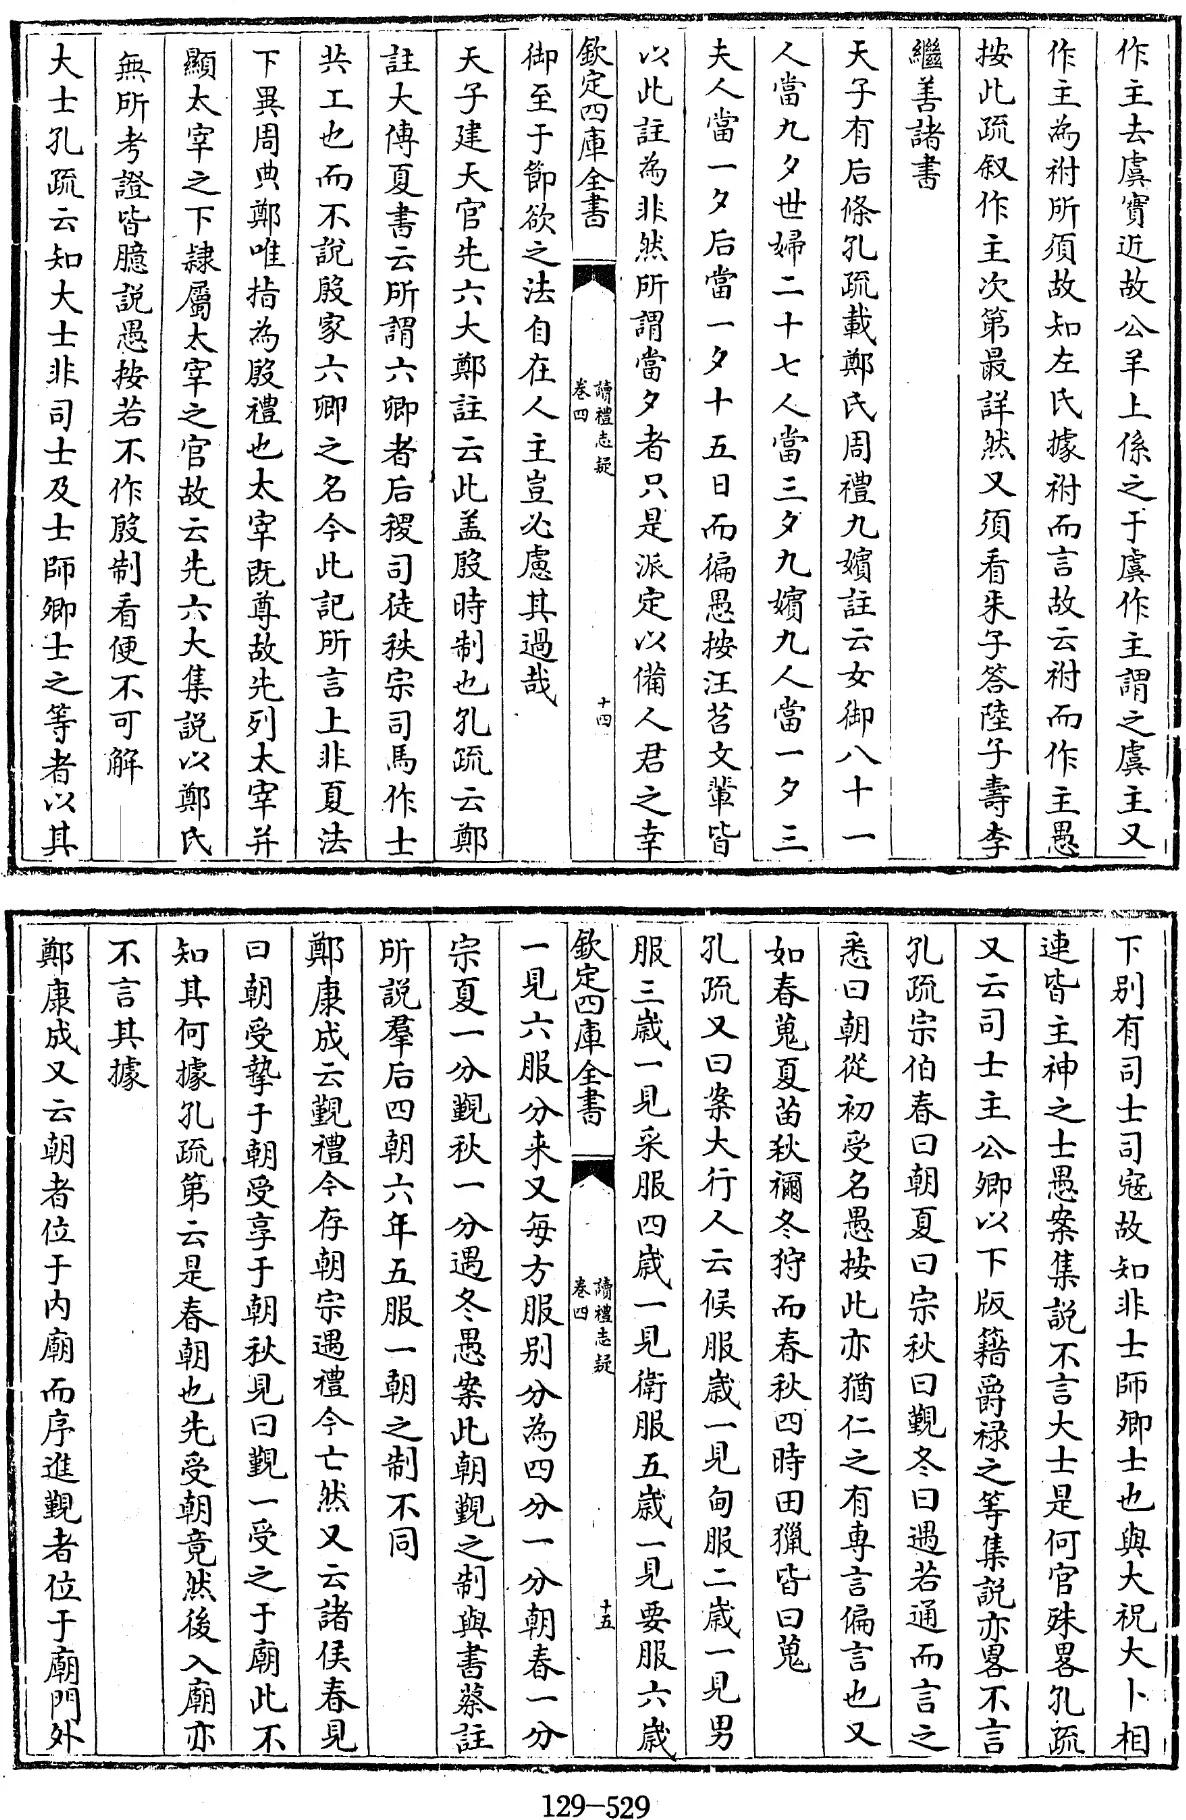 作主去虞實近故公羊上係之于虞作主謂之虞主又
作主為祔所須故知左氏據祔而言故云祔而作主愚
按此疏叙作主次第最詳然又須看朱子答陸子壽李
繼善諸書
天子有后條孔疏載鄭氏周禮九嬪註云女御八十一
人當九夕世婦二十七人當三夕九嬪九人當一夕三
夫人當一夕后當一夕十五日而徧愚按汪苕文輩皆
以此註為非然所謂當夕者只是派定以備人君之幸
欽定四庫全書
讀禮志疑
卷四
十四
御至于節欲之法自在人主豈必慮其過哉
天子建天官先六大鄭註云此盖殷時制也孔疏云鄭
註大傳夏書云所謂六卿者后稷司徒秩宗司馬作士
共工也而不說殷家六卿之名今此記所言上非夏法
下異周典鄭唯指為殷禮也太宰既尊故先列太宰并
顯太宰之下隷屬太宰之官故云先六大集說以鄭氏
無所考證皆臆説愚按若不作殷制看便不可解
大士孔疏云知大士非司士及士師卿士之等者以其
下别有司士司宼故知非士師卿士也與大祝大卜相
連皆主神之士愚案集説不言大士是何官殊畧孔疏
又云司士主公卿以下版籍爵禄之等集説亦畧不言
孔疏宗伯春曰朝夏曰宗秋曰覲冬曰遇若通而言之
悉曰朝從初受名愚按此亦猶仁之有專言偏言也又
如春蒐夏苗秋禰冬狩而春秋四時田獵皆曰蒐
孔疏又曰案大行人云候服歳一見甸服二歳一見男
服三歳一見采服四歳一見衛服五歳一見要服六歳
欽定四庫全書
讀禮志疑
卷四
十五
一見六服分来又每方服别分為四分一分朝春一分
宗夏一分覲秋一分遇冬愚案此朝覲之制與書蔡註
所説羣后四朝六年五服一朝之制不同
鄭康成云覲禮今存朝宗遇禮今亡然又云諸侯春見
曰朝受摯于朝受享于朝秋見曰覲一受之于廟此不
知其何據孔疏第云是春朝也先受朝竟然後入廟亦
不言其據
鄭康成又云朝者位于内廟而序進覲者位于廟門外
129-529